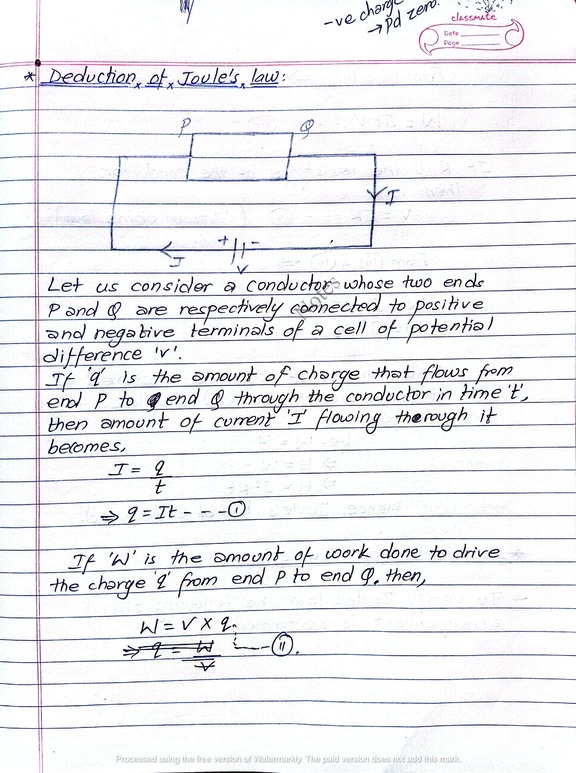 -ve charge
→Pd zero.
classmate
Date
Page
* Deduction of Joule's law:
P Q
I
+ -
I
V
Let us consider a conductor whose two ends
P and Q are respectively connected to positive
and negative terminals of a cell of potential
difference 'v'.
If 'q' is the amount of charge that flows from
end P to end Q through the conductor in time 't',
then amount of current 'I' flowing thorough it
becomes,
I = q
t
⇒ q = It - - - (I)
If 'W' is the amount of work done to drive
the charge 'q' from end P to end Q. then,
W = V X q
⇒ q = W
V
(II).
Notes
Processed using the free version of Watermarkly. The paid version does not add this mark.